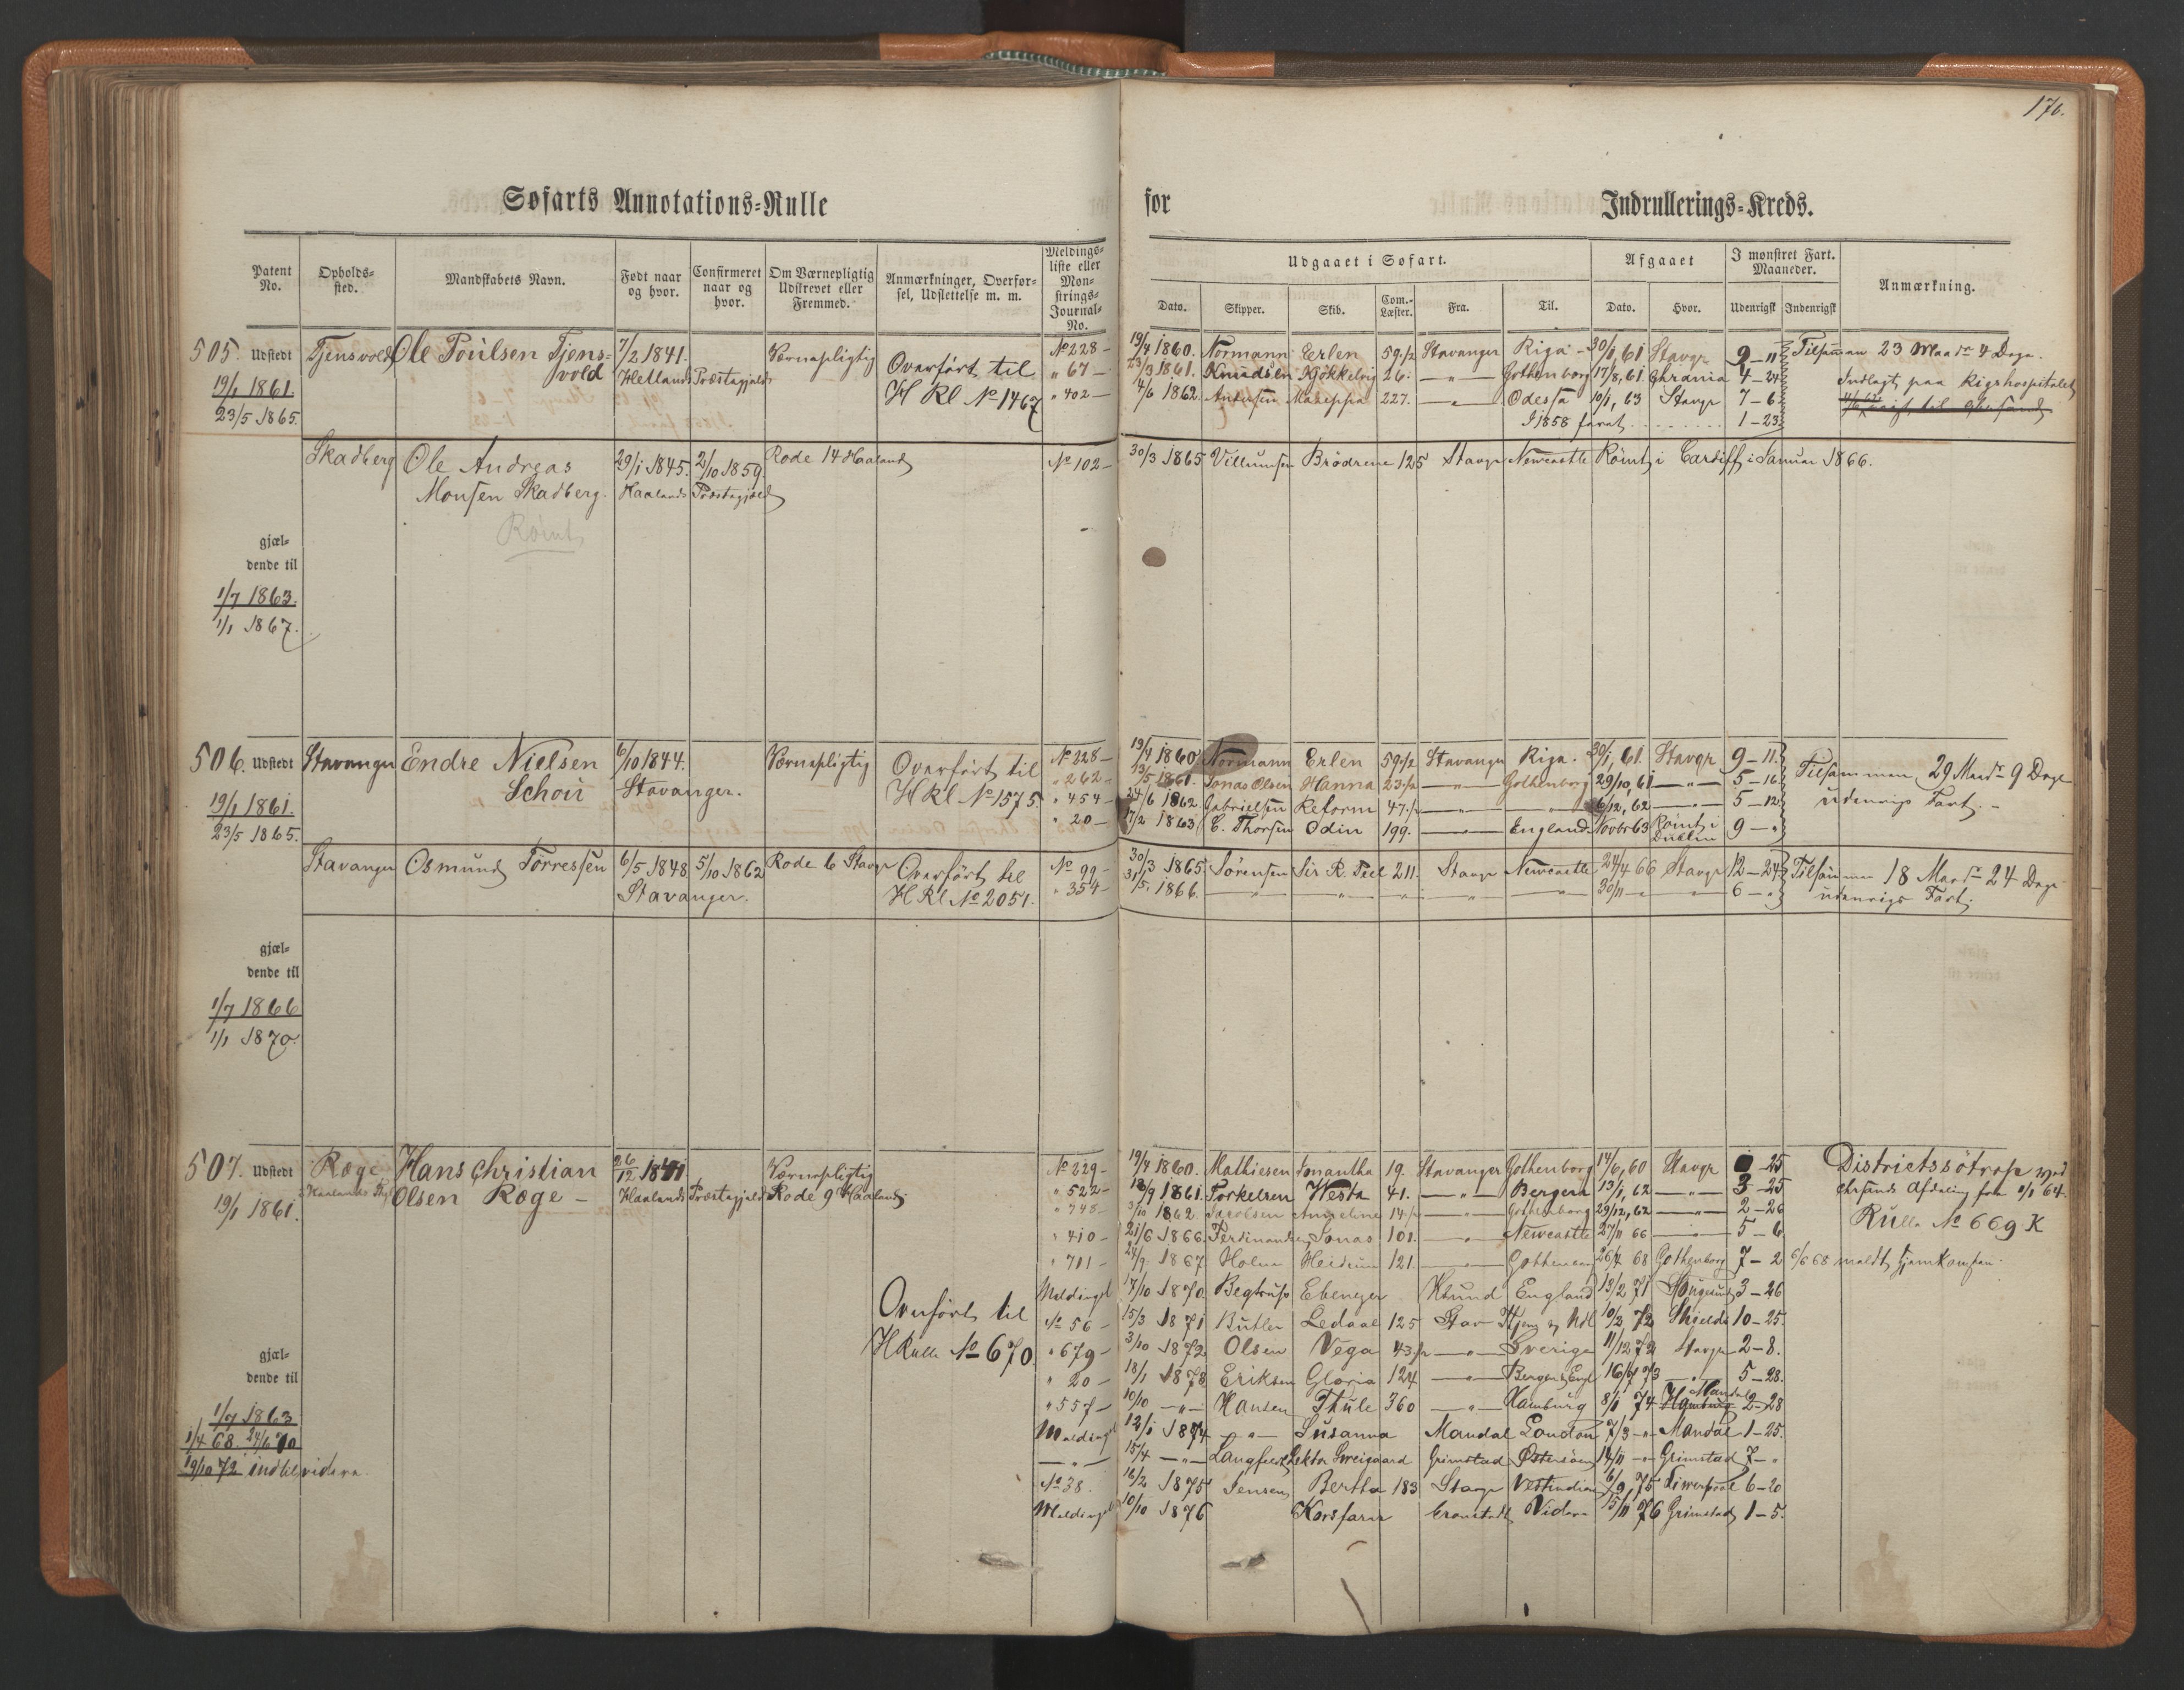 176.
Søfarts Annotations-Rulle for Indrullerings-Kreds.
Patent No. Opholds-sted. Mandskabets Navn. Født naar og hvor. Confirmeret naar og hvor. Om Værnepligtig Udskrevet eller Fremmed. Anmærkninger, Overførsel, Udslettelse m. m. Meldings-liste eller Mønstrings-Journal-No.
Udgaaet i Søfart. Afgaaet I mønstret Fart. Maaneder. Anmærkning.
Dato. Skipper. Skib. Com.-Læster. Fra. Til. Dato. Hvor. Udenrigsk Indenrigsk
505. Udstedt Tjensvold Ole Poulsen Tjens= 7/2 1841. Værnepligtig Overført til No 228 — 19/4 1860. Normann Erlen 59 1/2 Stavanger Riga - 30/1, 61 Stavgr 9-11 Tilsamman 23 Maadr 4 Dage.
19/1 1861. vold Hetlands Præstegjeld H Rl No 1467 " 67 — 23/3 1861. Knudsen Kjøkkelvig 26. — " — Gothenborg 17/8, 61 Chrania 4-24 Indlagt paa Rigshospitalet
23/5 1865. " 402 — 4/6 1862. Mateppa 227. — " — Odessa 10/1, 63 Stavgr 7-6
I 1858 faret . . . . . . . . 1-23
Skadberg Ole Andreas 29/1 1845. 2/10 1859. Rode 14 Haaland No 102 — 30/3 1865 Villumsen Brødrene 125 Stavgr Newcastle Rømt i Cardiff i Januar 1866.
Monsen Skadberg. Haalands Præstegjæld
Rømt
gjæl-
dende til
1/7 1863.
1/1 1867.
506. Udstedt Stavanger Endre Nielsen 6/10 1844. Værnepligtig Overført til No 228 — 19/4 1860 Normann Erlen 59 1/2 Stavanger Riga. 30/1, 61 Stavgr 9-11 Tilsammen 29 Maadr 9 Dage
Schou Stavanger. H Rl No 1575. " 262 — 13/5 1861. Jonas Olsen Hanna 23 1/2 — " — Gothenborg 29/10, 61 — " — 5-16 udenrigs Fart. -
19/1 1861. " 454 — 24/6 1862 Gabrielsen Reform 47 1/2 — " — — " — 6/12, 62 — " — 5-12
23/5 1865. " 20 — 17/2 1863 C. Thorsen Odin 199. — " — England. Novbr 63 Rømt i Dublin 9 - "
Stavanger Osmund Tørressen 6/5 1848 5/10 1862 Rode 6 Stavgr Overført til No 99 - 30/3 1865 Sørensen Sir R. Peel 211. Stavgr Newcastle 24/4 66 Stavgr 12-24 Tilsammen 18 Maadr 24 Dage
Stavanger. H Rl No 2051. " 354 - 31/5 1866. — " — — " — — " — — " — — " — 30/11 — " — 6 - " udenrigs Fart.
gjæl-
dende til
1/7 1866
1/1 1870.
507. Udstedt Røge Hans Christian 26/12 1841 Værnepligtig No 229 - 19/4 1860. Mathiesen Samantha 19. Stavanger Gothenborg 14/6, 60 Stavgr -25 Districtssøtrop ved
19/1 1861. Olsen Røge — Haalands Præstegjeld Rode 9 Haaland. " 522 - 18/9 1861. Torkelsen Westa 41. — " — Bergen 13/1, 62 — " — 3-25 Chrsands Afdeling fra 1/1 64.
1862. Jacobsen Angeline — " — Gothenborg 29/12, 62 — " — 2-26 Rulle No 669 K
" 410 - 21/6 1866. Ferdinandsen Jonas 101. — " — Newcastle 27/11 66 — " — 5-6
" 711 - 24/9 1867 Holm Heidrun 121 — " — Gothenborg 26/4 68 Gothenborg 7-2 6/6 68 meldt hjemkommen.
Meldingsl 17/10 1870. Begtrup Ebenezer Krsund England 13/2 71 3-26
Overført til No 56 - 15/3 1871 Butler Ledaal 125 Stav 10/2 72 Shields 10-25.
H Rulle No 670. " 679 - 3/10 1872 Olsen Vega — " — Sverige 11/12 72 Stavgr 2-8.
gjæl- " 20 - 13/1 1873 Eriksen Gloria 124 — " — Bergen & Engl 16/7 73 — " — 5-28.
dende til " 557 - 10/10 — " — Hansen Thule 360 — " — Hamburg 8/1 74 Hamburg Mandal 2-28
1/7 1863 Meldingsl 12/1 1874 — " — Susanna Mandal London 7/3 — " — Mandal 1-25.
1/4 68. 24/6 70 — " — 15/4 — " — Langfeldt Rektor Sweigaard Grimstad Østersøen 14/11 — " — Grimstad 7 - "
19/10 72 indtil videre. No 38. 16/2 1875 Jensen Bertha 183 Stavgr Vestindien 6/9, 75 Liverpool 6-20
Meldingsl 10/10 1876 Korsfarer Cronstadt Videre 15/11 76 Grimstad 1-5.